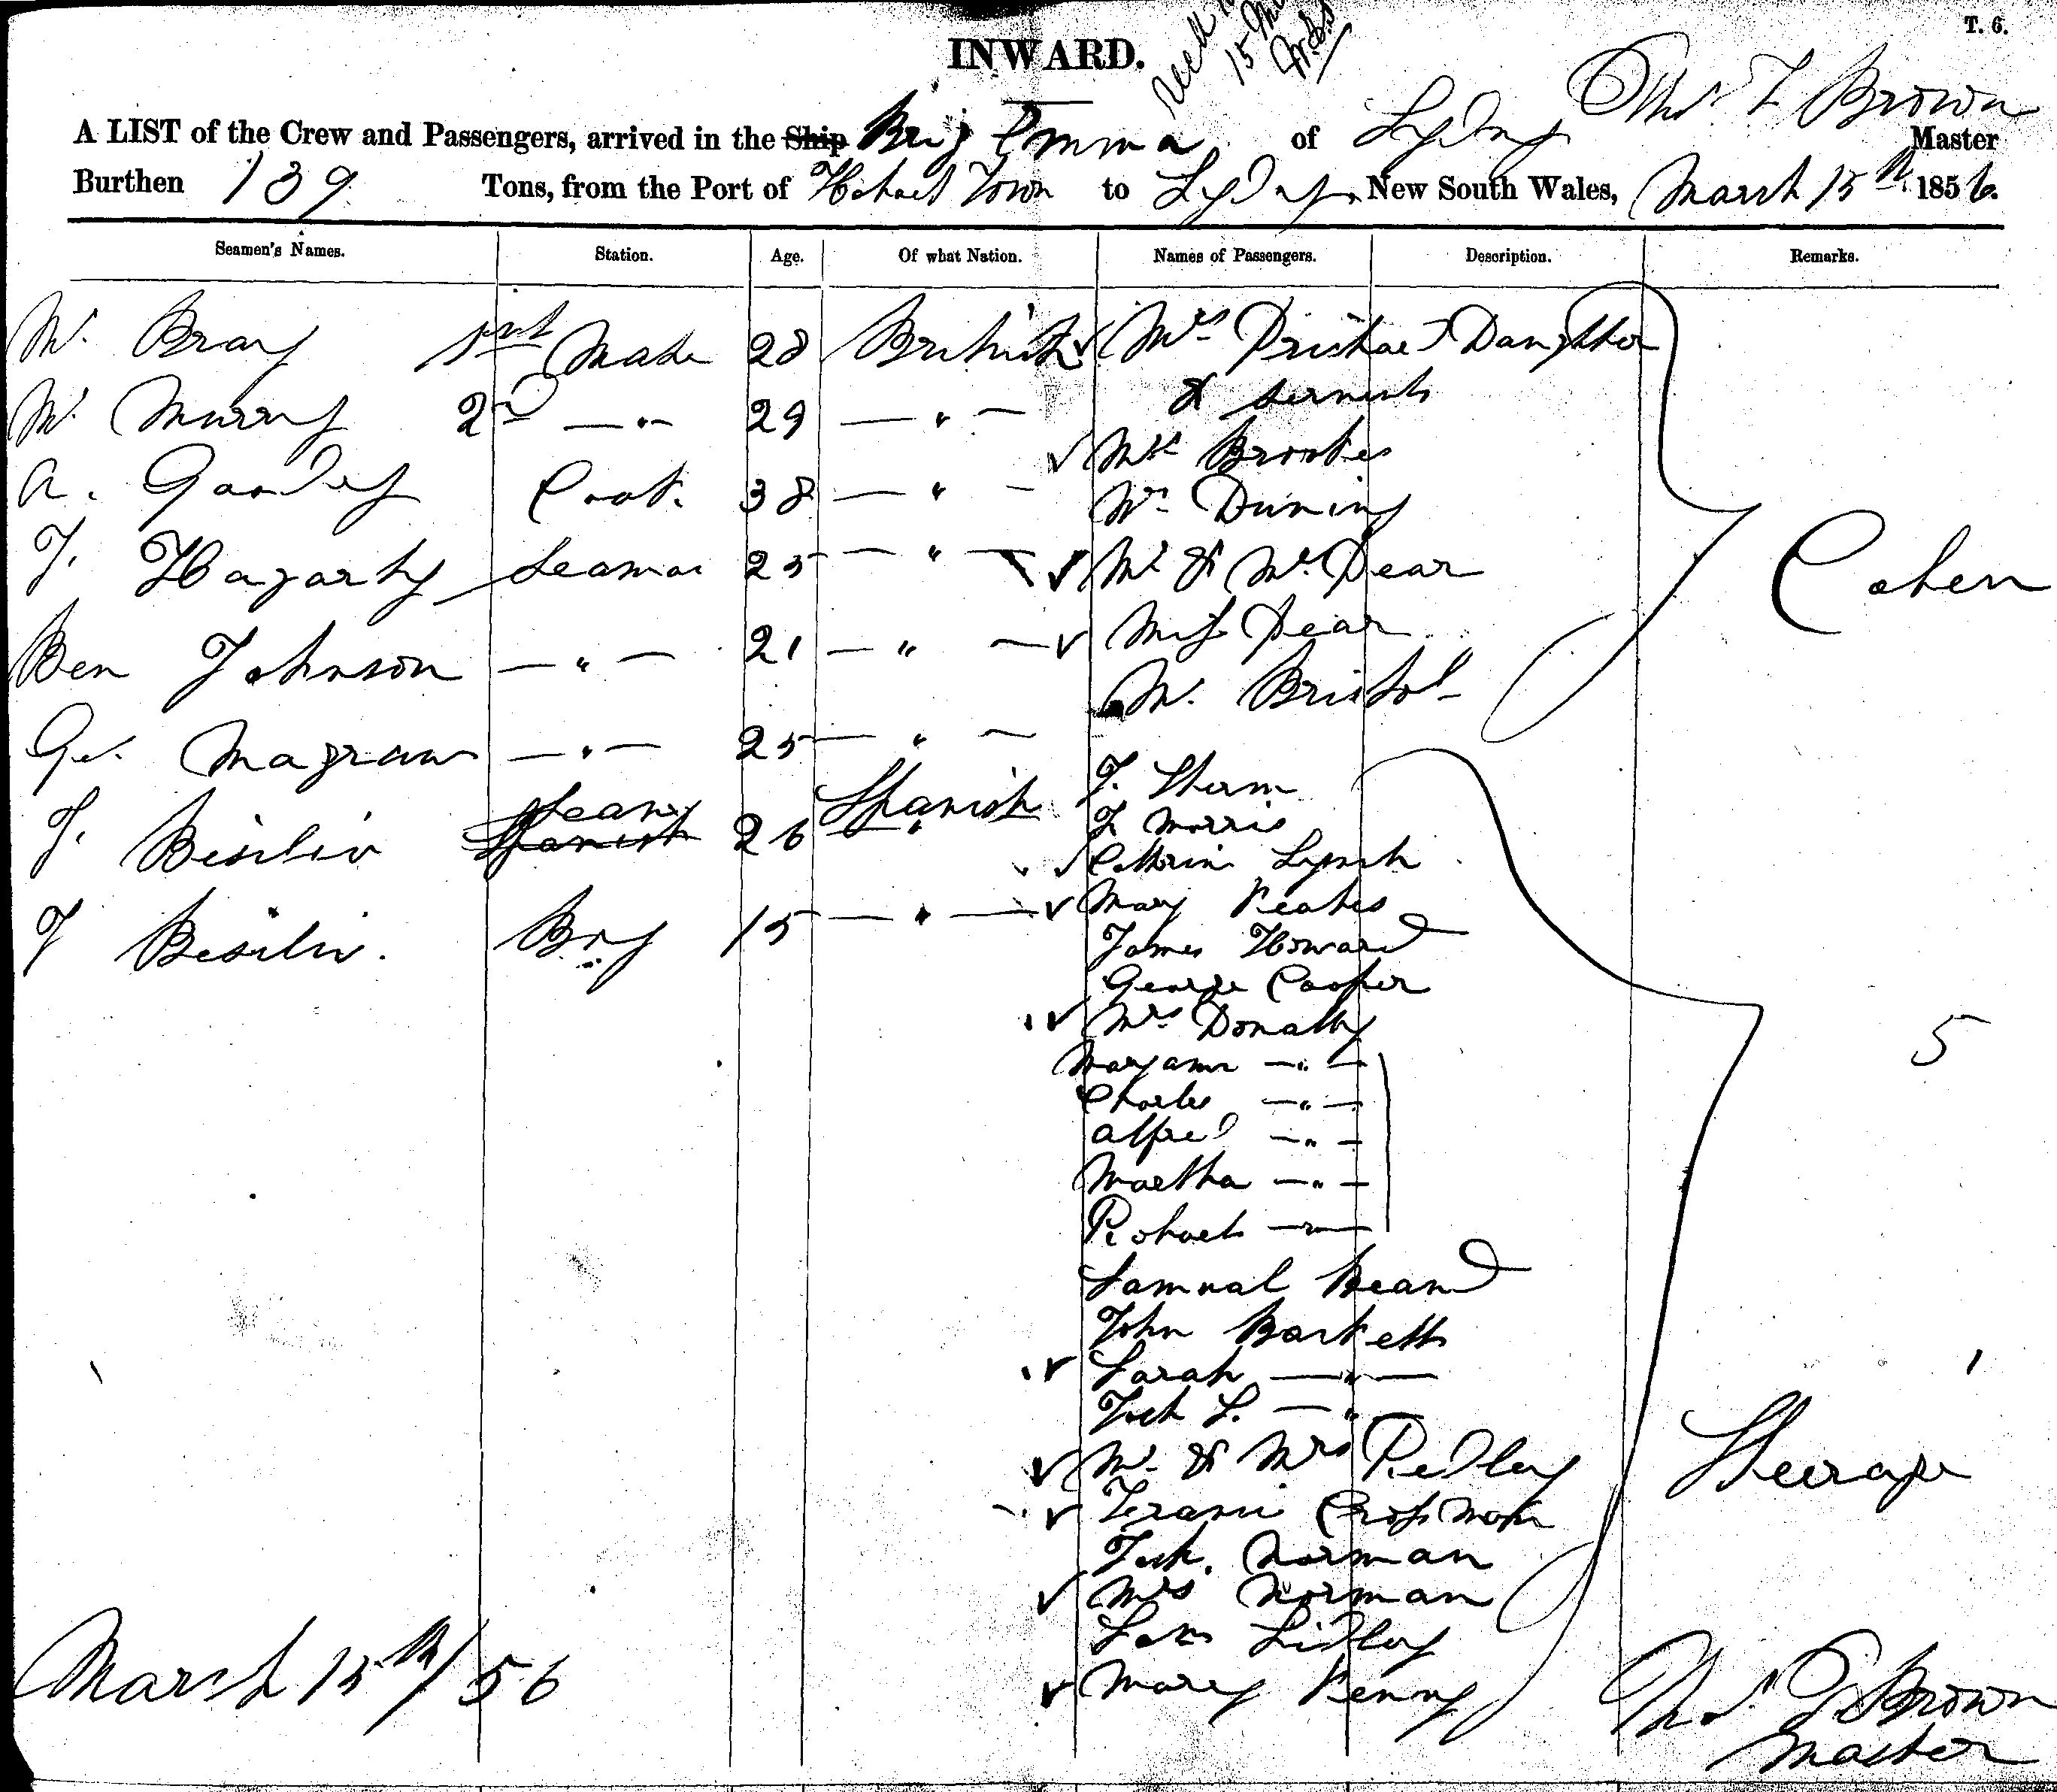 T. 6.
INWARD.
15
Thos. F Brown
A LIST of the Crew and Passengers, arrived in the Ship Brig Emma of Sydney Master
Burthen 139 Tons, from the Port of Hobart Town to Sydney, New South Wales, March 15th 1856.
Seamen's Names. Station. Age. Of what Nation. Names of Passengers. Description. Remarks.
W. Bray 1st Mate 28 British
W. Murray 2nd — " — 29 — " —
A. Cook. 38 — " —
T. Hagarty Seaman 25 — " —
Ben Johnson — " — 21 — " —
Geo. Magraw — " — 25 — " —
J. Spanish Seaman 26 Spanish
J Boy 15 — " —
Mrs Daughter
& servants
Mr Brookes
Mr Duning
Mr & Mrs Dear
Miss Dear
Mr. Bristol
J. Sherm
J Morris
Cathrine Lynch
Mary Keates
James Howard
George Cooper
Mrs Donally
Maryann — " —
Charles — " —
Alfred — " —
Martha — " —
Richard — " —
Samual Beard
John Bartlett
Sarah — " —
S. — " —
Mr. & Mrs Pedley
Crossman
Norman
Mrs Norman
Lidley
Mary Kenny
5
Steerage
March 15th/56
Thos. F Brown
Master